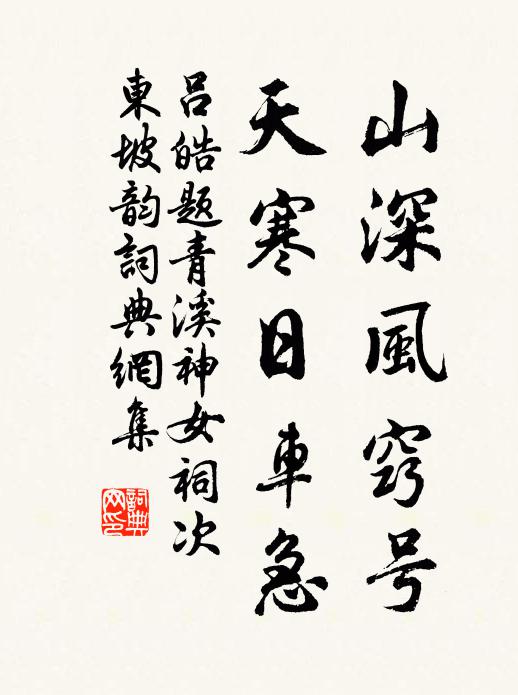 山深風窍号
天寒日車急
吕皓题青溪神女祠次
東坡韵詞典網集
詞典网印